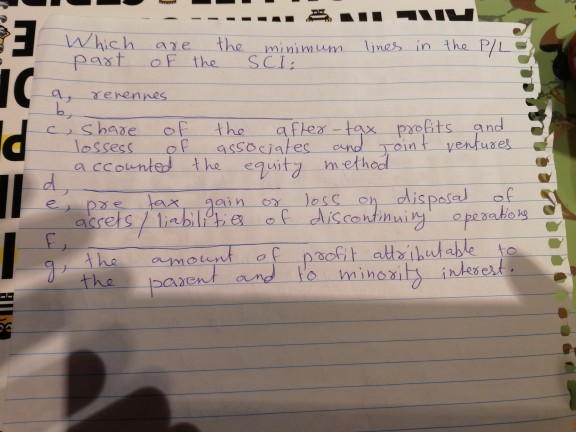 Which are the minimum lines in the P/L
part of the SCI:
a, revennes
b, ____________________
c, share of the after-tax profits and
lossess of associates and joint ventures
accounted the equity method
d, ____________________
e, pre tax gain or loss on disposal of
assets/liabilities of discontinuing operations
f, ____________________
g, the amount of profit attributable to
the parent and to minority interest.